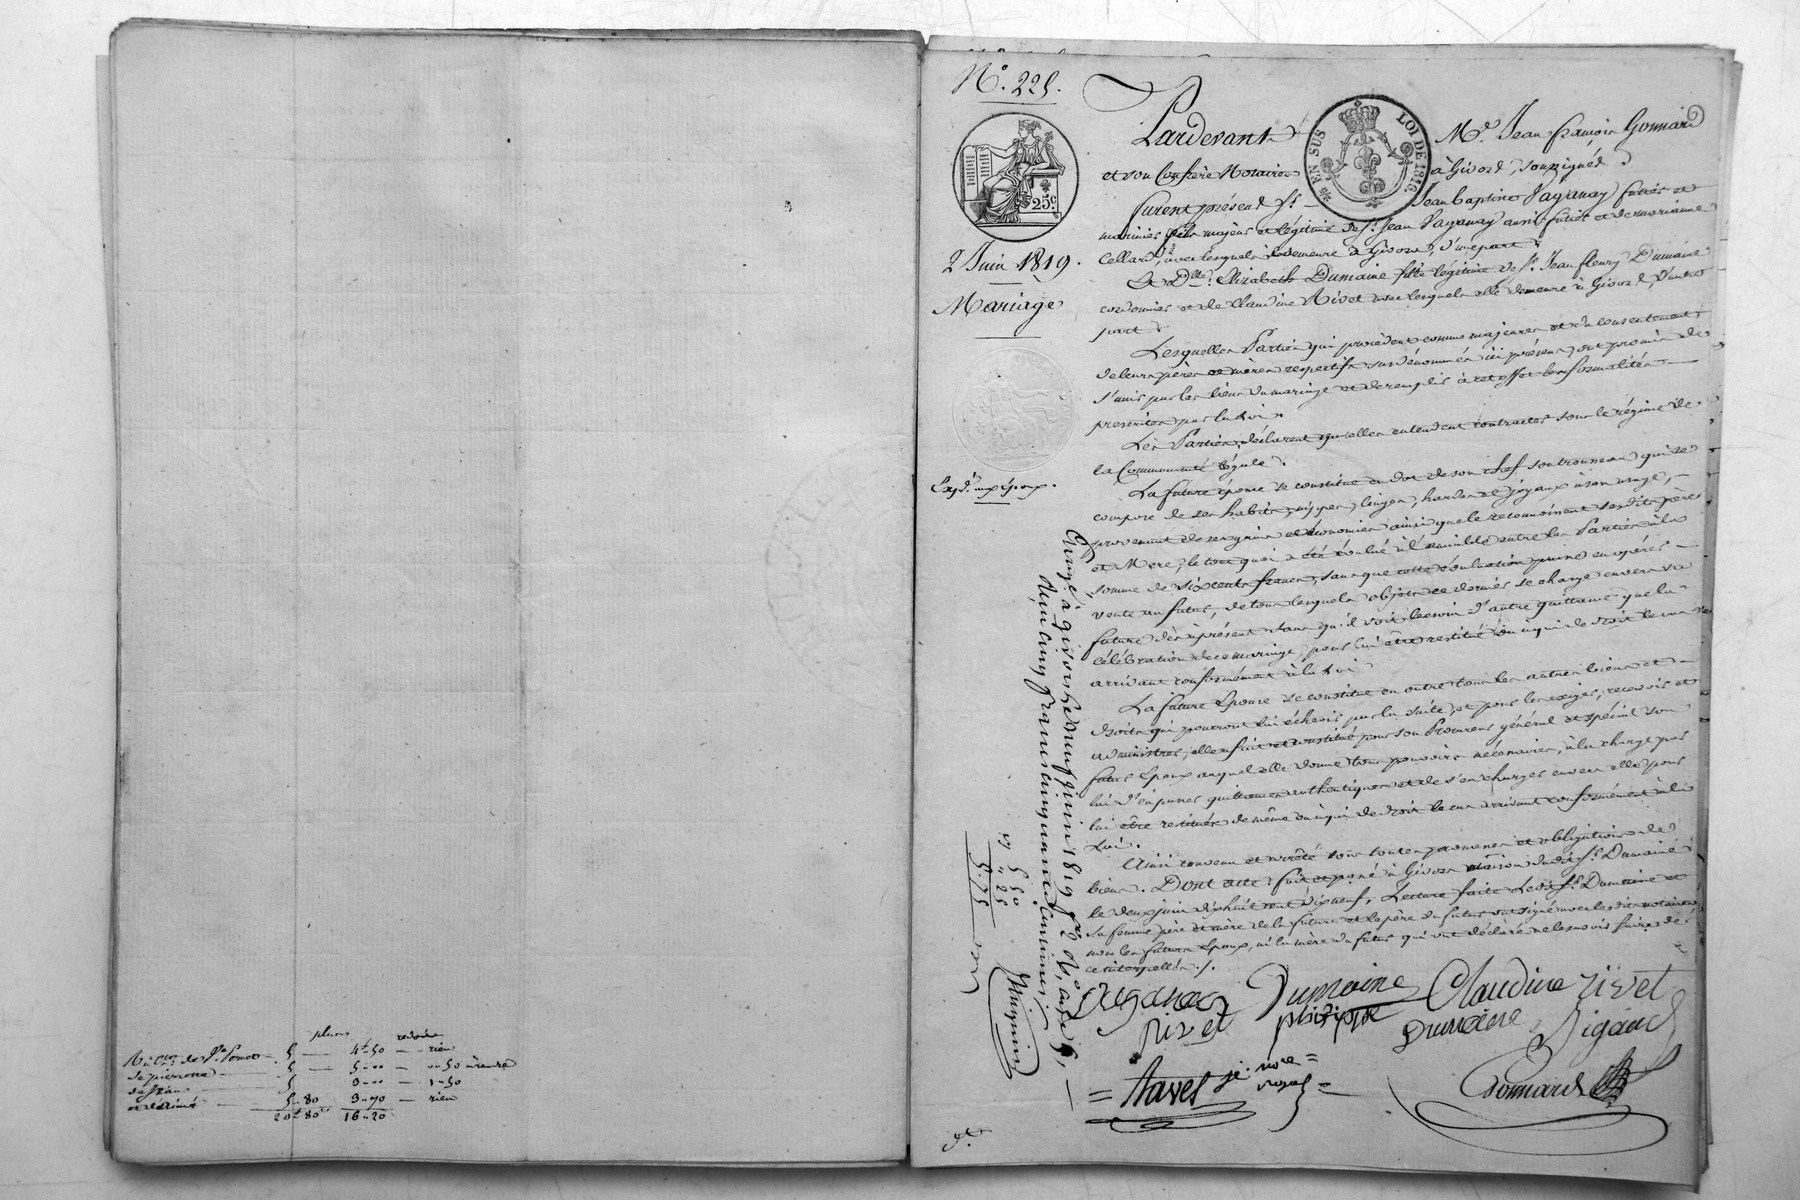 plus reduire
Nces de Ve 5 — 4f 50 — rien
de pierrette — 5 — 5 " 00 — " 50 à rendre
de Jean 5 3 " 00 — 1 " 50
et d'aimé — 5 " 80 3 " 70 — rien
20f 80c 16 " 20
No. 225.
25c
2 Juin 1819.
Mariage
Expd. aux Epoux.
% EN SUS
LOI DE 1816.
Pardevant Me Jean françois Gonnard
et son Confrère Notaires à Givors, soussignés.
furent présens Sr. Jean baptiste Paganay futier et
marinier fils majeur et légitime de Sr. Jean Paganay aussi futier et de marianne
Cellard, avec lesquels il demeure à Givors, d'une part.
Et Dlle. Elizabeth Dumaine fille légitime de Sr. Jean fleury Dumaine
cordonnier et de Claudine Rivet avec lesquels elle demeure à Givors, d'autre
part.
Lesquelles Parties qui procèdent comme majeures et du consentement
de leurs pères et mères respectifs susdénommés ici présens, ont promis de
s'unir par les liens du mariage et de remplir à cet effet les formalités
prescrites par la Loi.
Les Parties déclarent qu'elles entendent contracter sous le régime de
la Communauté légale.
La future épouse se constitue en dot de son chef son trousseau qui se
compose de ses habits, nippes, linges, hardes et joyaux à son usage,
provenant de ses gains et économies ainsi que le reconnoissent sesdits père
et Mère, le tout quoi a été évalué à l'amiable entre les Parties à la
somme de six cents francs, sans que cette évaluation puisse en opérer
vente au futur, de tous lesquels objets ce dernier se charge envers sa
future dès à présent sans qu'il soit besoin d'autre quittance que la
célébration du mariage, pour lui être restitué ou à qui de droit le cas
arrivant conformément à la Loi.
La future Epouse se constitue en outre tous les autres biens et
droits qui pourront lui échéoir par la suite, et pour les exiger, recevoir et
administrer, elle a fait et constitué pour son Procureur général et spécial son
futur Epoux auquel elle donne tous pouvoirs nécessaires, à la charge par
lui d'en passer quittances authentiques et de s'en charger envers elle pour
lui être restitués de même ou à qui de droit le cas arrivant conformément à la
Loi.
Ainsi convenu et arrêté sous toutes promesses et obligations de
biens. Dont acte: fait et passé à Givors maison dudit Sr. Dumaine
le deux juin dix huit cent dix neuf, Lecture faite Ledit Sr. Dumaine et
sa femme père et mère de la future et le père du futur ont signé avec lesdits notaires
non les futurs Epoux, ni la mère du futur qui ont déclaré ne le savoir faire de
ce interpellés ./.
Dumaine Claudine rivet
rivet philippe Dumaine Rigaud
= Havet je. nore =
Gonnard
Enregé à givors le neuf juin 1819
Reçu cinq francs cinquante centimes
5 50
" 25
5.75